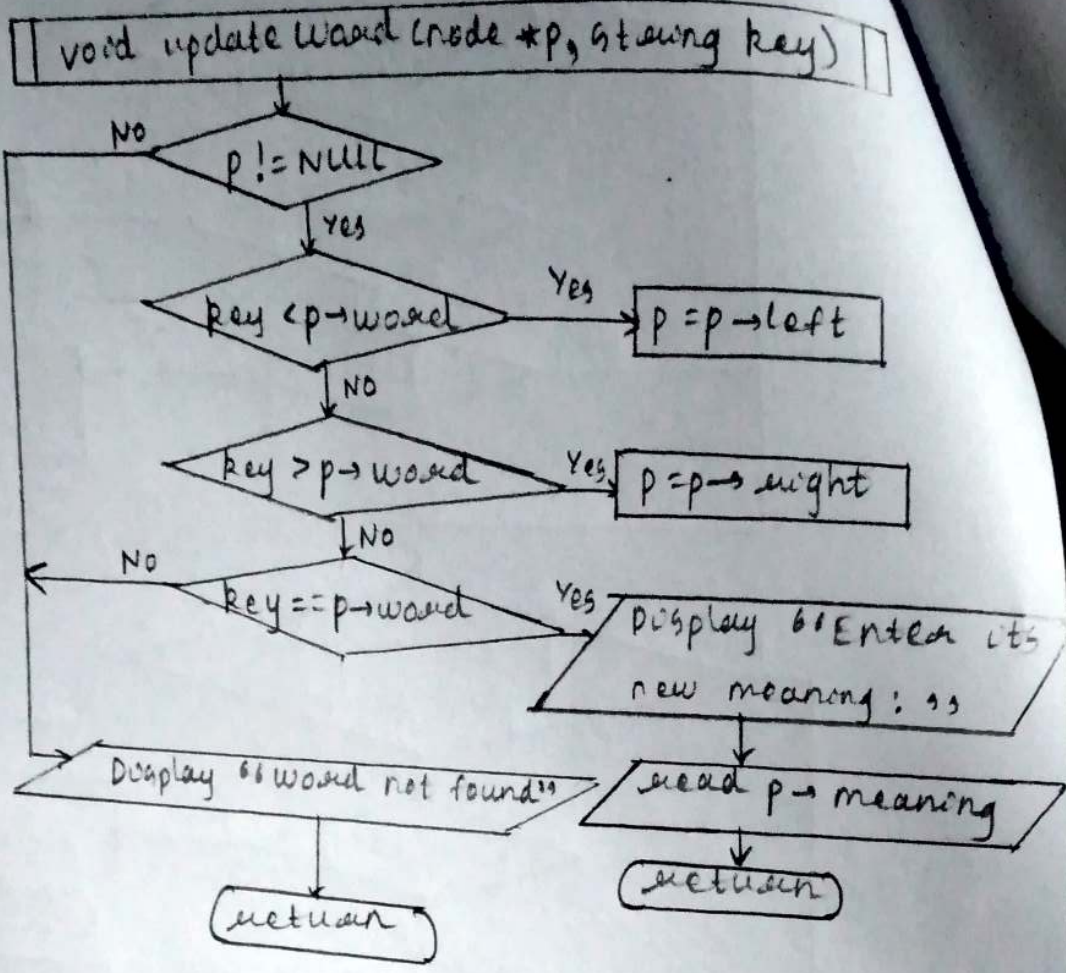 void updateWord (node *p, string key)
NO
p != NULL
Yes
key < p→word
Yes
p = p→left
NO
key > p→word
Yes
p = p→right
NO
NO
key == p→word
Yes
Display “Enter its
new meaning: ”
Display “Word not found”
read p→meaning
return
return